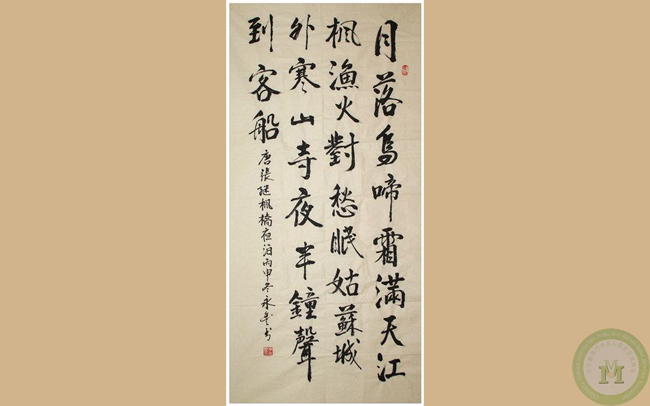 月落烏啼霜滿天江
楓漁火對愁眠姑蘇城
外寒山寺夜半鐘聲
到客船
唐張继楓橋夜泊丙申冬永